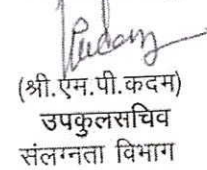 (श्री.एम.पी.कदम)
उपकुलसचिव
संलग्नता विभाग